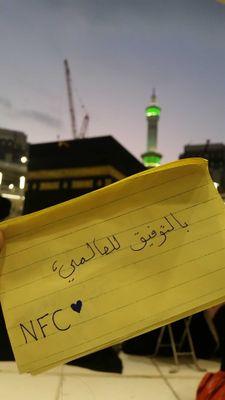 بالتوفيق للعالمي،
NFC♥